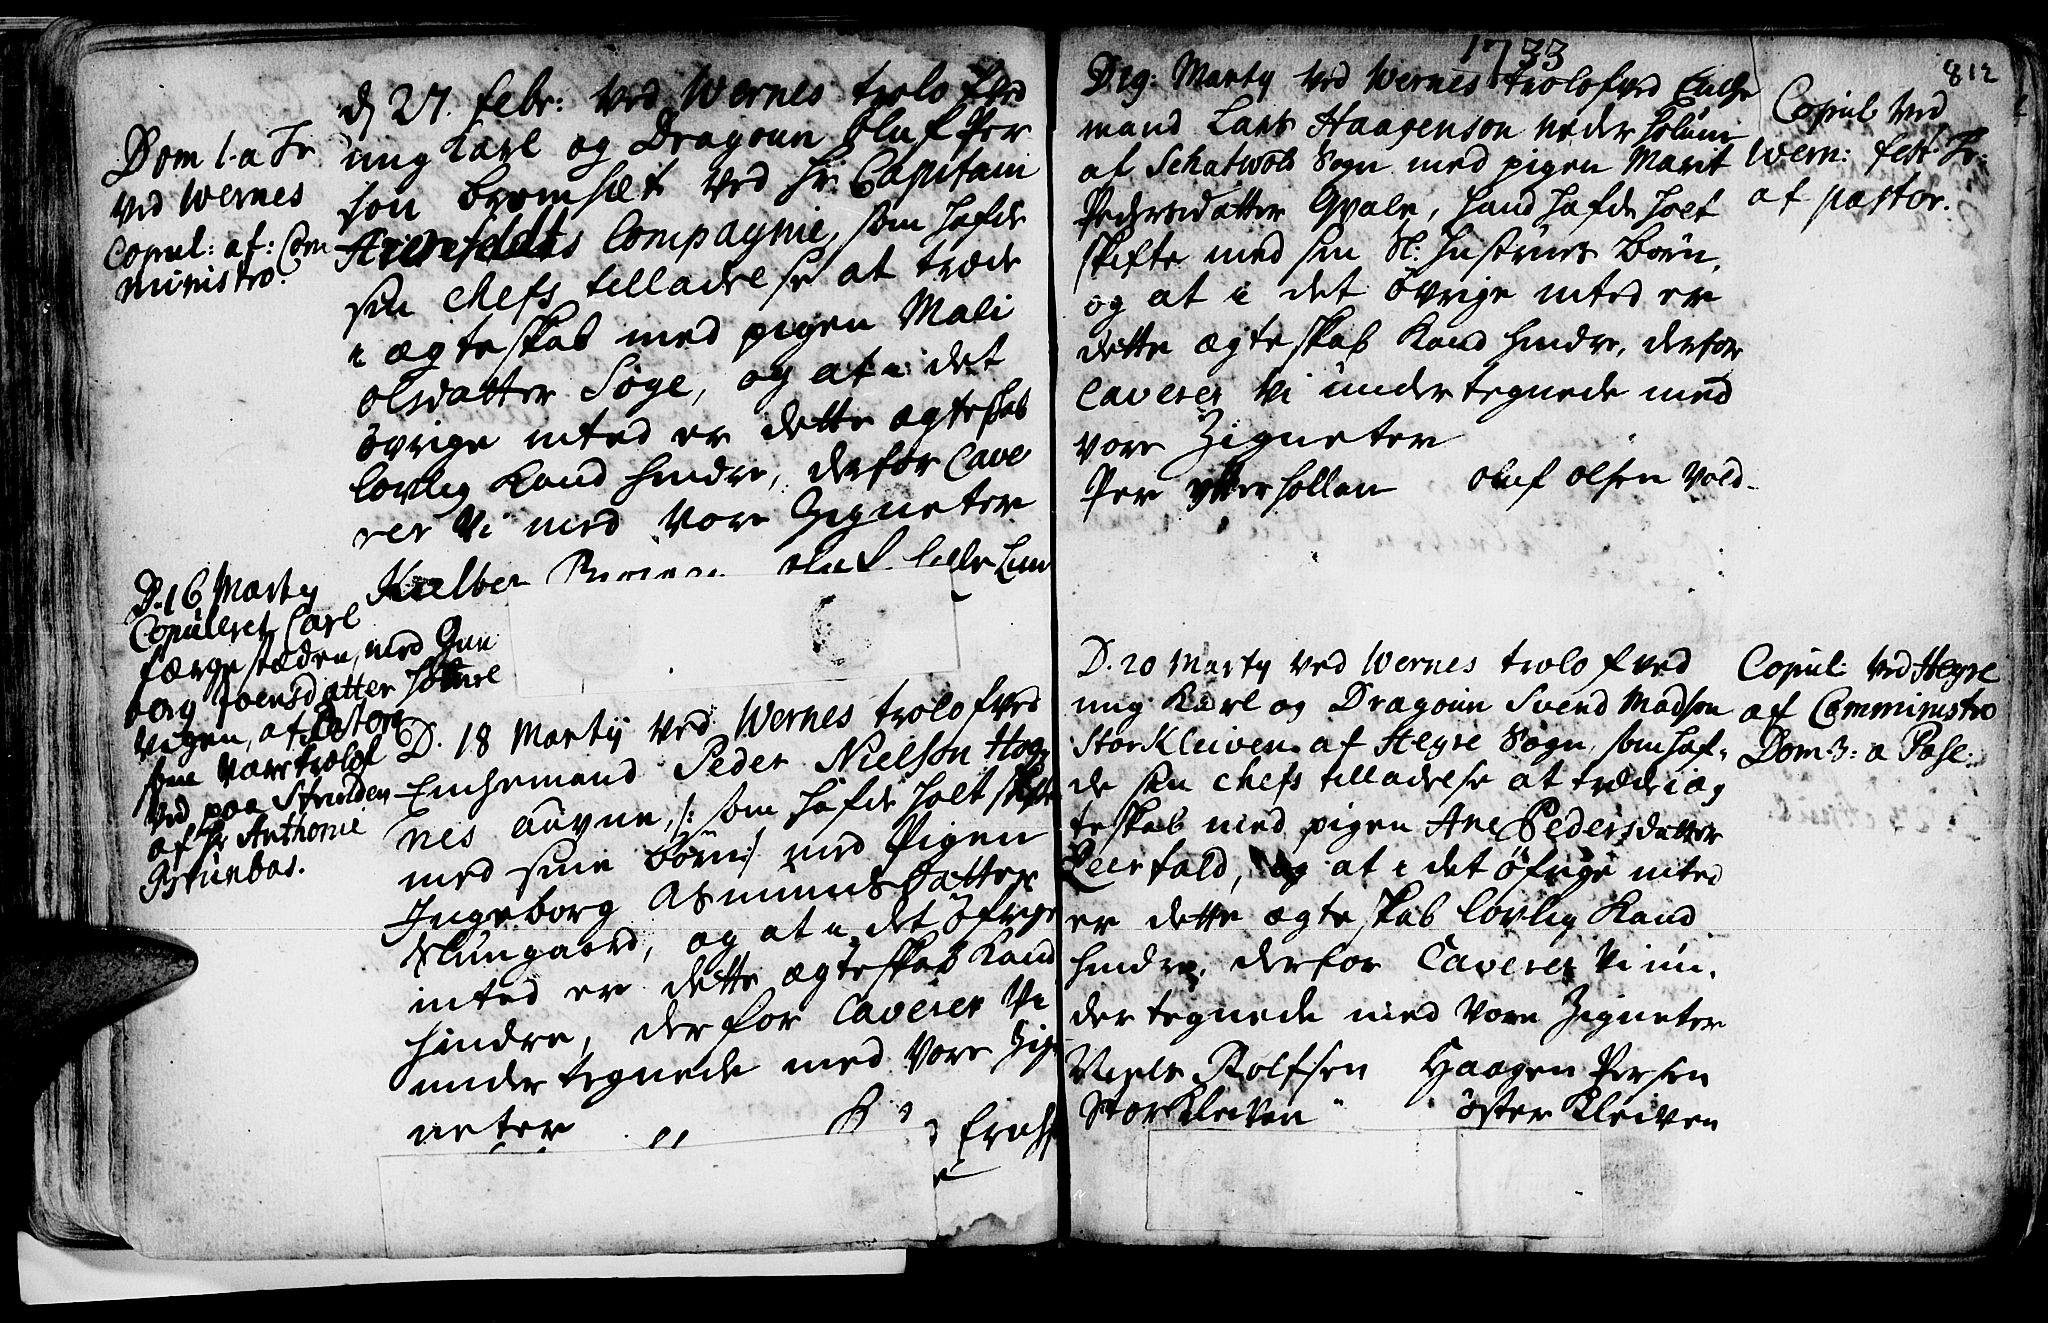 Dom 1. a Tr
ved Wernes
Copul: af: Com
ministro.
d 27. febr: ved Wernes trolofved
ung Karl og Dragoun Oluf Per
son Bromset ved Hr: Capitain
Compagnie, som hafde
sin Chefs tilladelse at træde
i ægteskab med pigen Mali
olsdatter Søge, og at i det
övrige inted er dette ægteskab
lovlig kand hindre, derfor Cave
rer vi med vore Zigneter
oluf
D. 16 Marty
Copuleret Carl
færgestæden, med Gun
borg Joensdatter
vigen, af Pastore
som vare trolof
ved paa Strinden
af Hr Anthonie
Brünbas.
D. 18 Martij ved Wernes trolofved
Enchemand Peder Nielson Hog
nes aüvne, /: som hafde holt skifte
med sine Börn :/ med Pigen
Ingeborg Asmundsdatter
og at i det öfrige
inted er dette ægteskab kand
hindre, derfor Caverer vi
undertegnede med vore Zig
neter
1733
812
D 19: Marty ved Wernes trolofved Enche
mand Lars Haagenson neder
af Schatwols Sogn med pigen Marit
Pedersdatter Qvale, hand hafde holt
skifte med sin Sl: Hustrues Börn,
og at i det övrige inted er
dette ægteskab kand hindre, derfor
Caverer vi undertegnede med
vore Zigneter
Per ytterhollan oluf olsen Vold
Copul: ved
Wern: fest:
af pastor.
D. 20 Marty ved Wernes trolofved
ung Karl og Dragoun Svend Madsen
StorKleiven af Hegre Sogn, som haf-
de sin Chefs tilladelse at træde i æg
teskab med pigen Ane Pedersdatter
Leerfald, og at i det öfrige inted
er dette ægteskab lovlig kand
hindre, derfor Caverer vi un-
dertegnede med vore Zigneter
Niels Rolfsen Haagen Persen
StorKleiven öster Kleiven
Copul: ved Hegre
af Comministro
Dom 3: a Pasc: